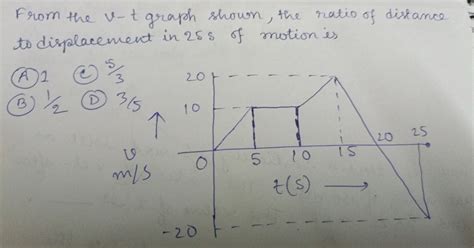 From the v-t graph shown, the ratio of distance
to displacement in 25 s of motion is
(A) 1 (C) 5/3
(B) 1/2 (D) 3/5
20
10
0 5 10 15 20 25
v
m/s
t(s)
-20